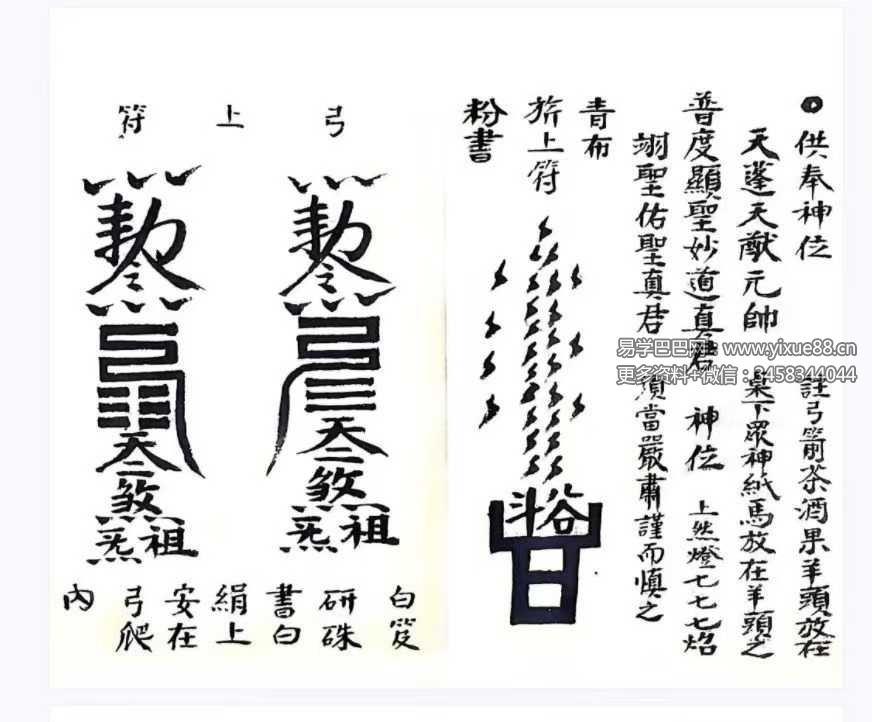 供奉神位 註弓箭茶酒果羊頭放在
天蓬天猷元帥 桌下眾神紙馬放在羊頭之
普度顯聖妙道真君 神位 上然燈七七七焰
翊聖佑聖真君 須當嚴肅謹而慎之
青布
旂上符
粉書
弓上符
白笈
研硃
書白
絹上
安在
弓爬
內
易学巴巴网：www.yixue88.cn
更多资料+微信：2458344044